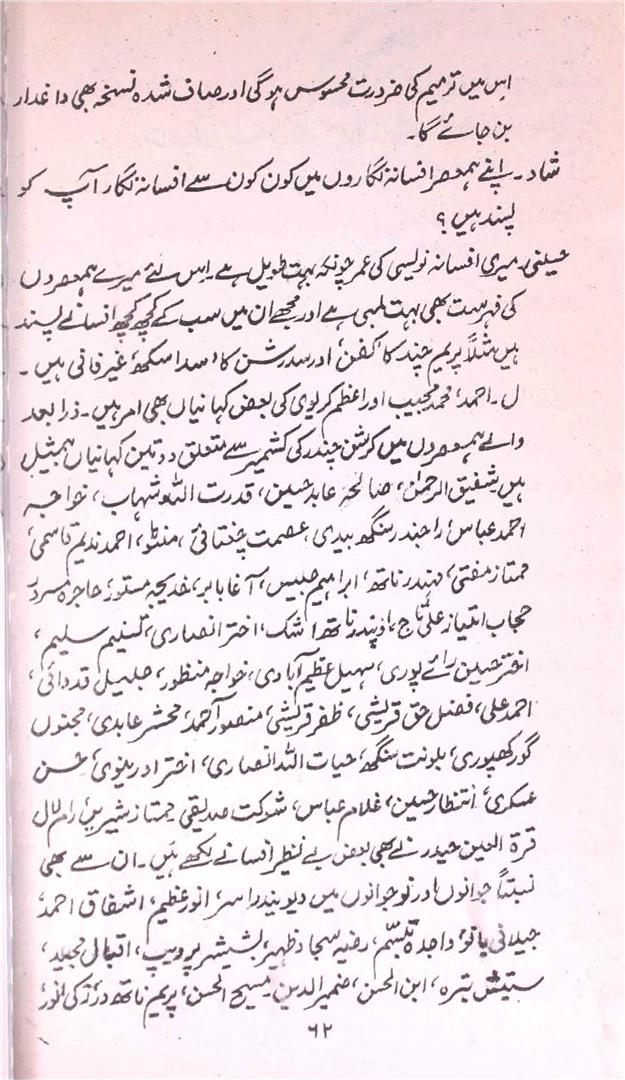 اس میں ترمیم کی ضرورت محسوس ہوگی اور صاف شدہ نسخہ بھی داغدار
بن جائے گا۔
شاد۔ اپنے ہمعصر افسانہ نگاروں میں کون کون سے افسانہ نگار آپ کو
پسند ہیں؟
حسینی۔ میری افسانہ نویسی کی عمر چونکہ بہت طویل ہے۔ اس لئے میرے ہمعصروں
کی فہرست بھی بہت لمبی ہے اور مجھے ان میں سب کے کچھ کچھ افسانے پسند
ہیں مثلاً پریم چند کا 'کفن' اور سدرشن کا 'سدا سکھ' غیر فانی ہیں۔
ل۔ احمد، محمد مجیب اور اعظم کریوی کی بعض کہانیاں بھی امر ہیں۔ ذرا بعد
والے ہمعصروں میں کرشن چندر کی کشمیر سے متعلق دو تین کہانیاں بمثیل
ہیں شفیق الرحمٰن، صالحہ عابد حسین، قدرت اللہ شہاب، خواجہ
احمد عباس، راجندر سنگھ بیدی، عصمت چغتائی، منٹو، احمد ندیم قاسمی،
ممتاز مفتی، مہندر ناتھ، ابراہیم جلیس، آغا بابر، خدیجہ مستور، حاجرہ مسرور
حجاب امتیاز علی تاج، اوپندر ناتھ اشک، اختر انصاری، تسنیم سلیم،
اختر حسین رائے پوری، سہیل عظیم آبادی، خواجہ منظور، جلیل قدوائی،
احمد علی، فضل حق قریشی، ظفر قریشی، منصور احمد، محشر عابدی، مجنوں
گورکھپوری، بلونت سنگھ، حیات اللہ انصاری، اختر اورینوی، حسن
عسکری، انتظار حسین، غلام عباس، شوکت صدیقی، ممتاز شیریں، رام لال
قرۃ العین حیدر نے بھی بعض بے نظیر افسانے لکھے ہیں۔ ان سے بھی
نسبتاً جوانوں اور نوجوانوں میں دیویندر اسر، انور عظیم، اشفاق احمد،
جیلانی بانو، واجدہ تبسّم، رضیہ سجاد ظہیر، بشیشر پردیپ، اقبال مجید،
ستیش بترہ، ابن الحسن، ضمیر الدین۔ مسیح الحسن، پریم ناتھ در، ذکی انور،
۶۲